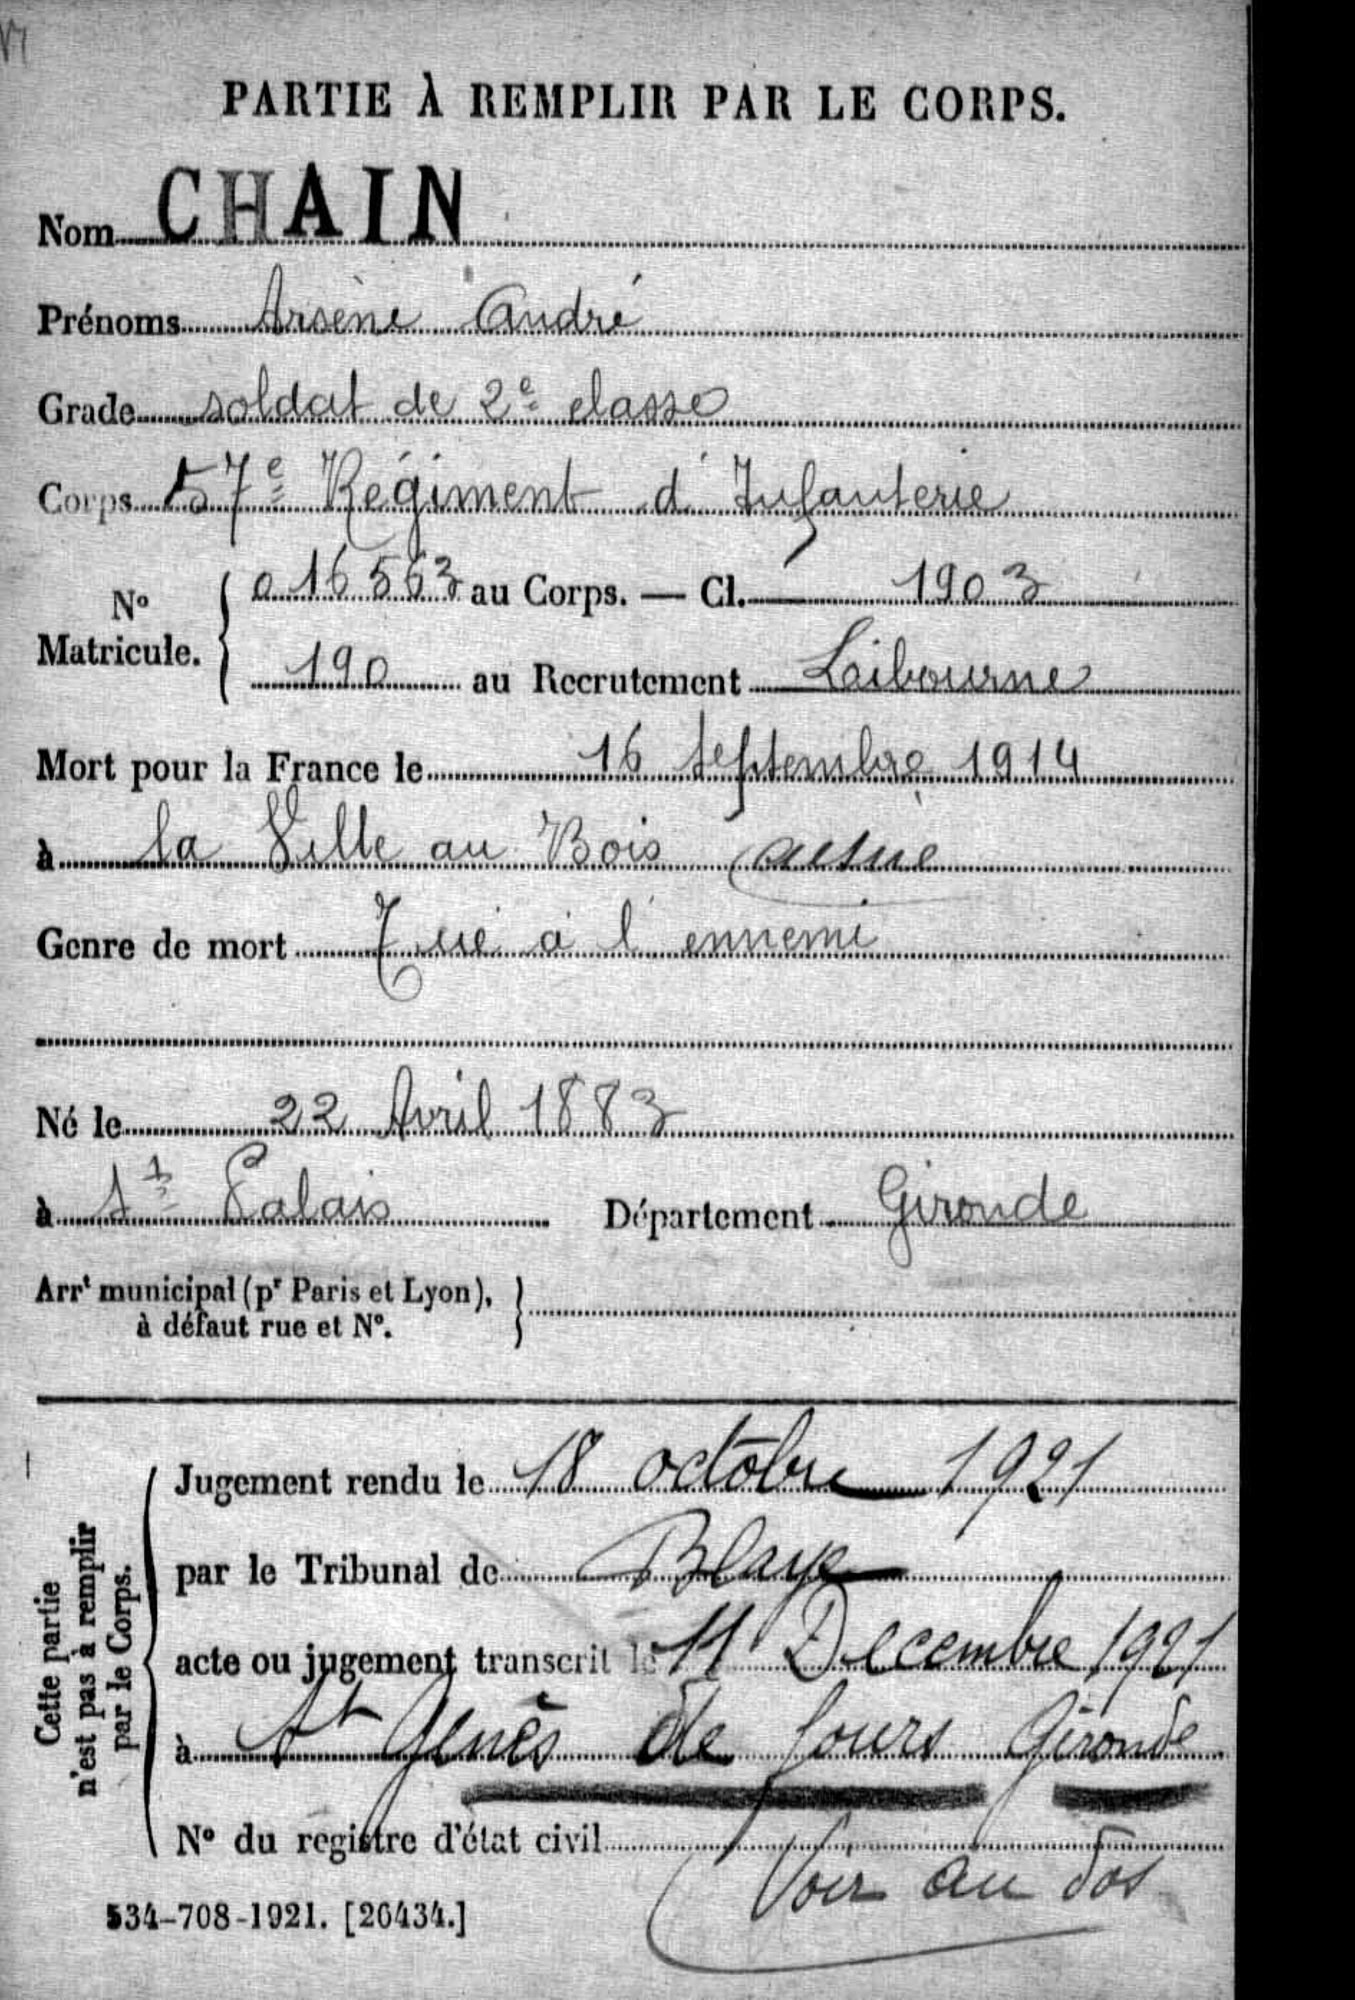 PARTIE À REMPLIR PAR LE CORPS.
Nom CHAIN
Prénoms Arsène André
Grade soldat de 2e classe
Corps 57e Régiment d'Infanterie
No Matricule. 016563 au Corps. — Cl. 1903
190 au Recrutement Libourne
Mort pour la France le 16 Septembre 1914
à la Ville au Bois Aisne
Genre de mort Tué à l'ennemi
Né le 22 Avril 1883
à St Palais Département Gironde
Arrt municipal (pr Paris et Lyon),
à défaut rue et No.
Cette partie
n'est pas à remplir
par le Corps.
Jugement rendu le 18 octobre 1921
par le Tribunal de Blaye
acte ou jugement transcrit le 11 Decembre 1921
à St Genès de fours Gironde
No du registre d'état civil
Voir au dos
534-708-1921. [26434.]